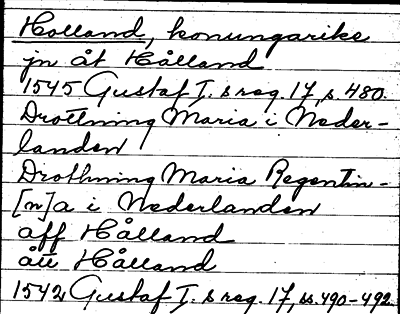 Holland, konungarike
jn åt Hålland
1545 Gustaf I. s reg. 17, s. 480.
Drottning Maria i Neder-
landen
Drothning Maria Regentin-
[n]a i Nederlanden
aff Hålland
ått Hålland
1542 Gustaf I. s reg. 17, ss. 490-492